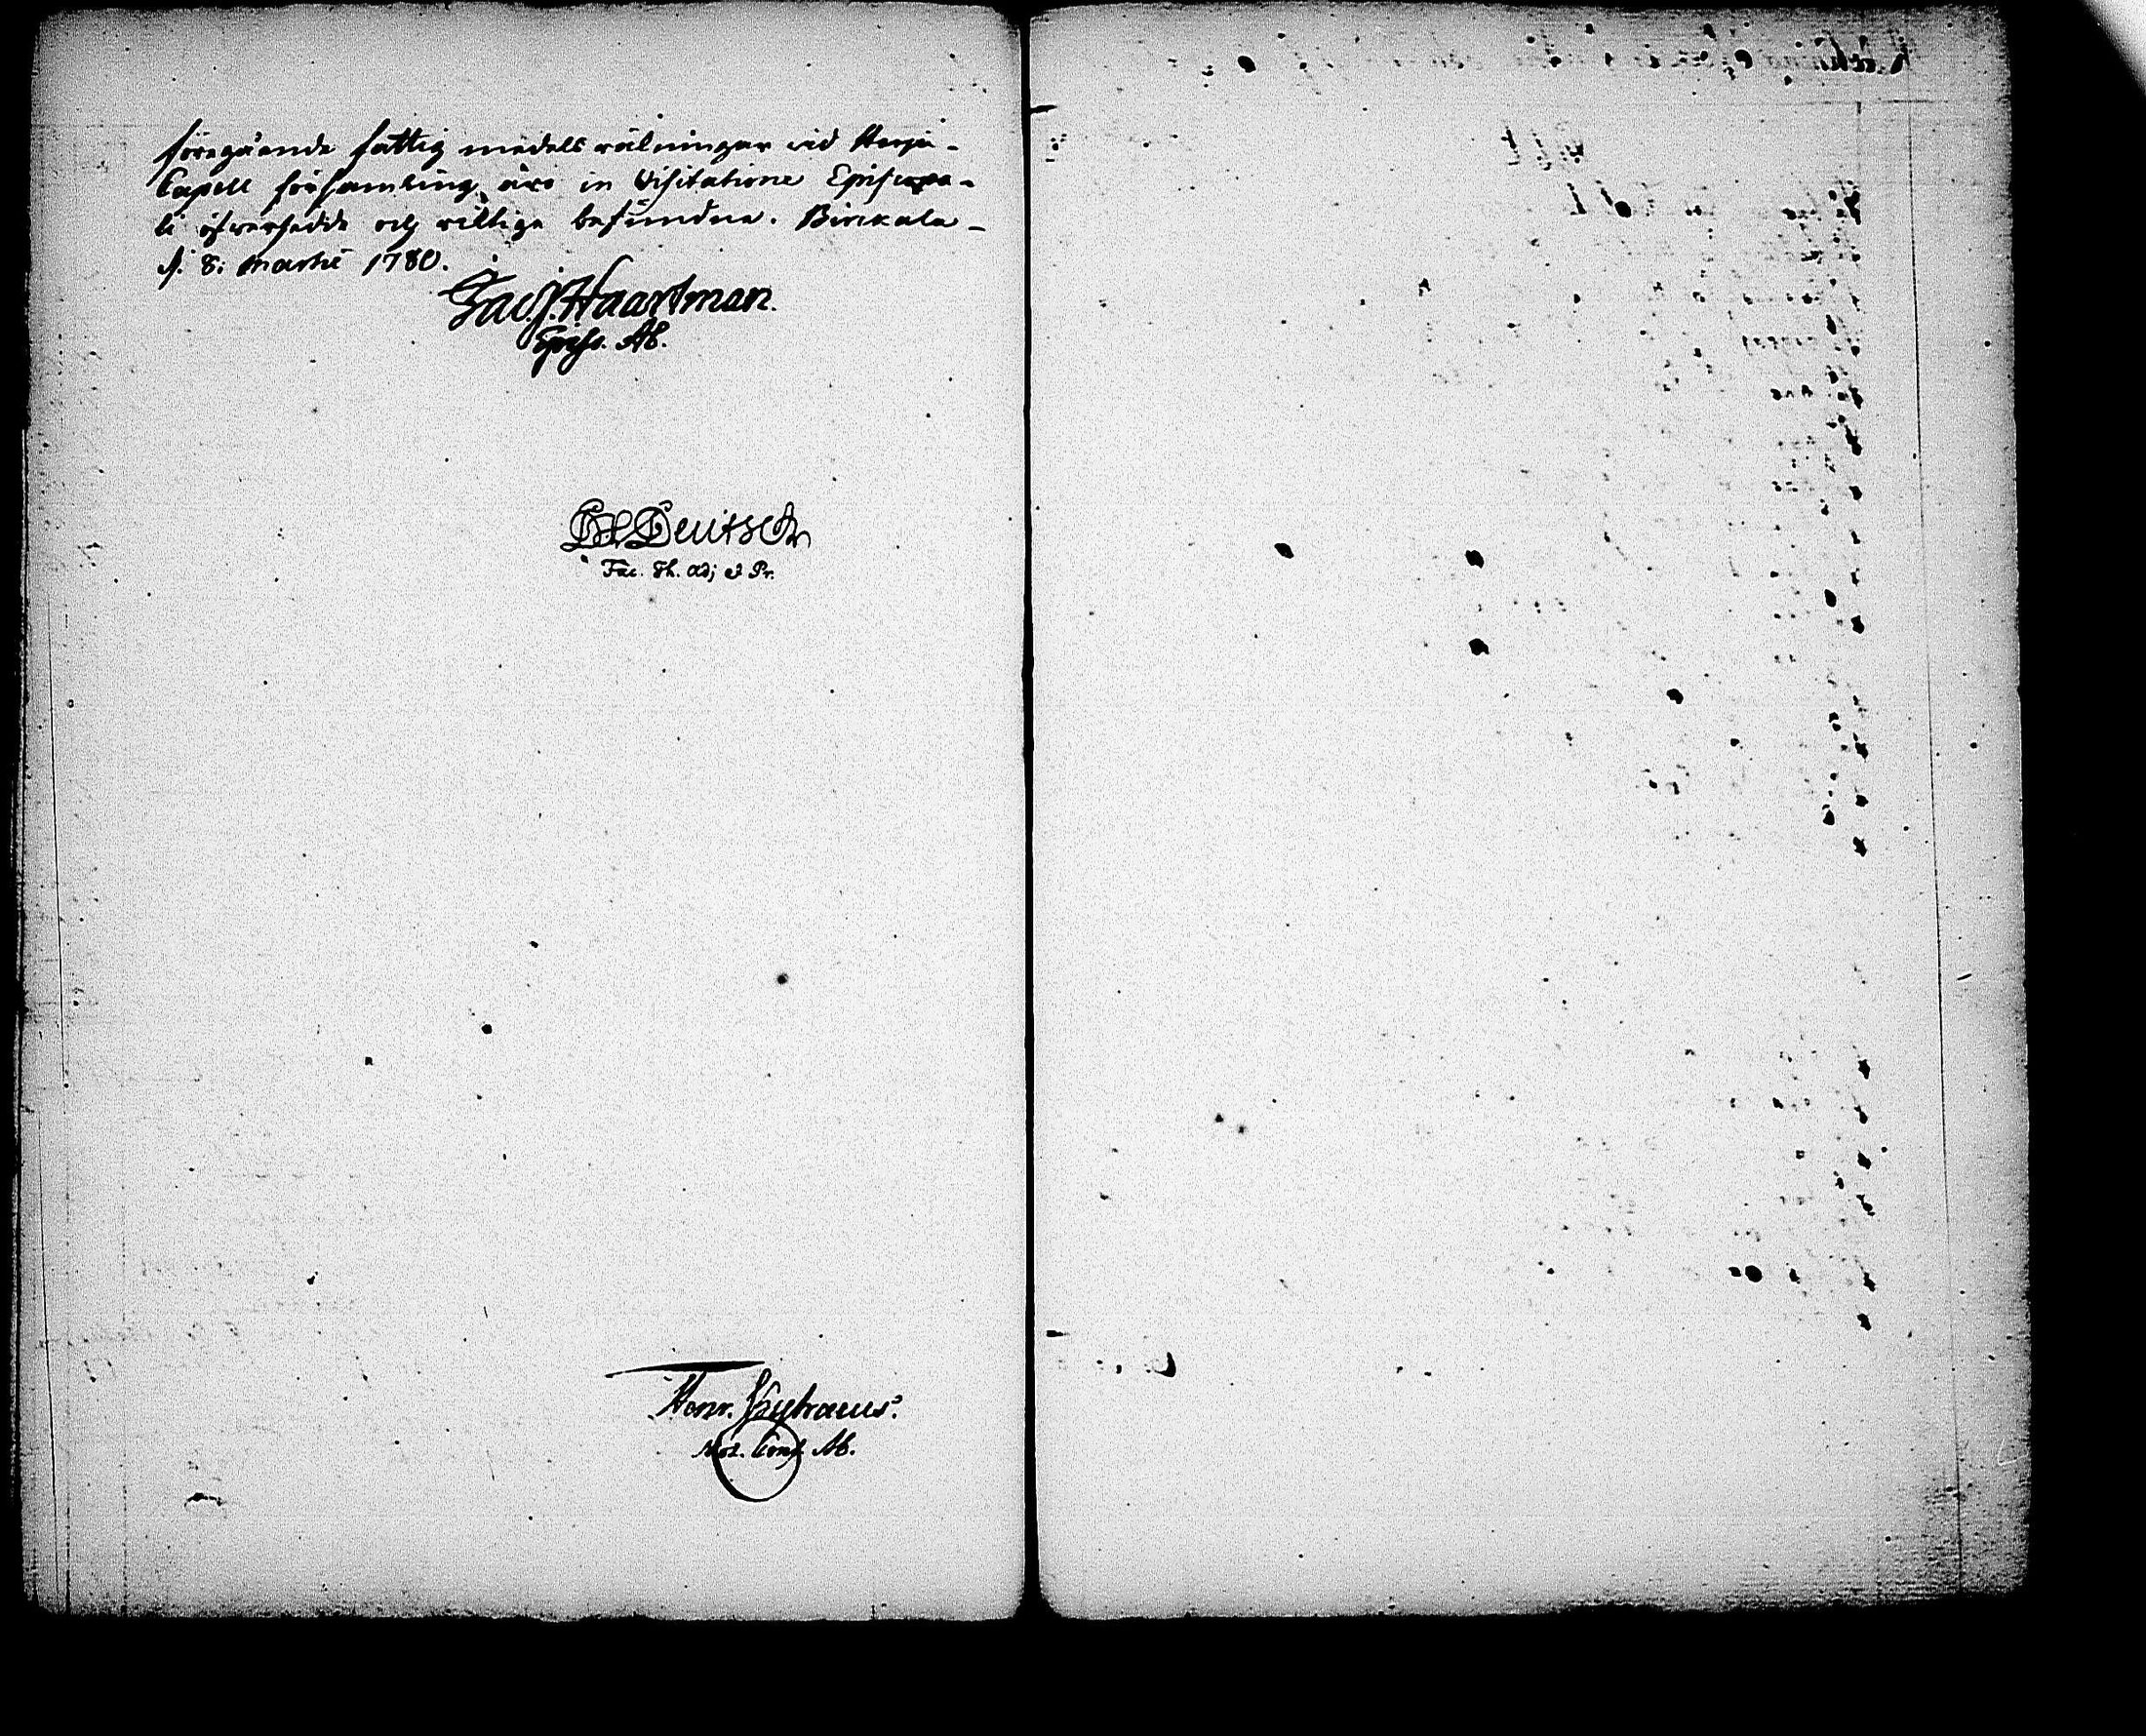 föregående fattig medels räkningar vid Harju-
Capell församling äro in Visitatione Episcopa-
li öfwersedde och riktige befundne. Birckala
d. 8: Martii 1780.
Jac. J. Haartman.
Episc. Ab.
Deutsch
Fac. Th. Adj & Pr.
Henr.
Not. Cons. Ab.